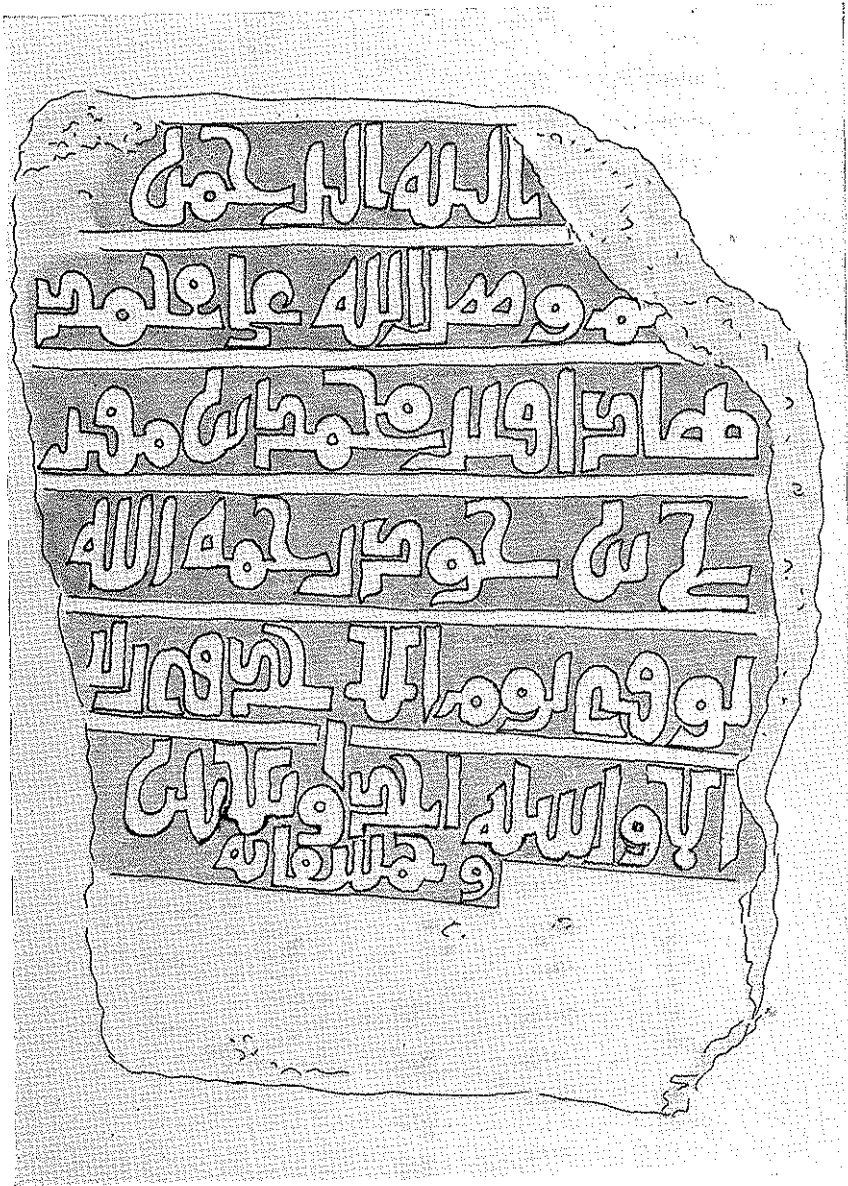 الله الرحمن
م وصل الله على محمد
هاذا قبر محمد بن مفر
ج بن حود رحمه الله
توفي يوم الاحد في
سنه احد وثلاثين
وخمسمائه